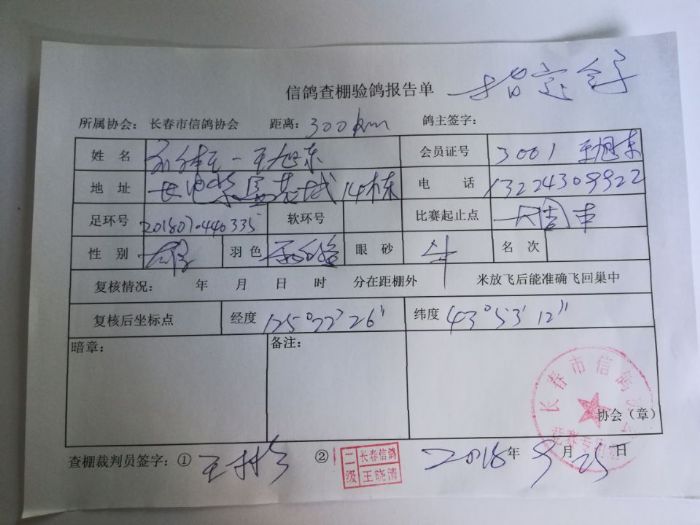 信鸽查棚验鸽报告单 指定鸽
所属协会：长春市信鸽协会 距离：300km 鸽主签字：
姓名 王旭东 会员证号 3001 王旭东
地址 14栋 电话 13224309922
足环号 201807-440335 软环号 比赛起止点
性别 羽色 眼砂 牛 名次
复核情况： 年 月 日 时 分在距棚外 米放飞后能准确飞回巢中
复核后坐标点 经度 125°22'26" 纬度 43°53'12"
暗章： 备注：
长春市信鸽
协会（章）
查棚裁判员签字：① ② 二级 长春信鸽 王晓清 2018年9月25日